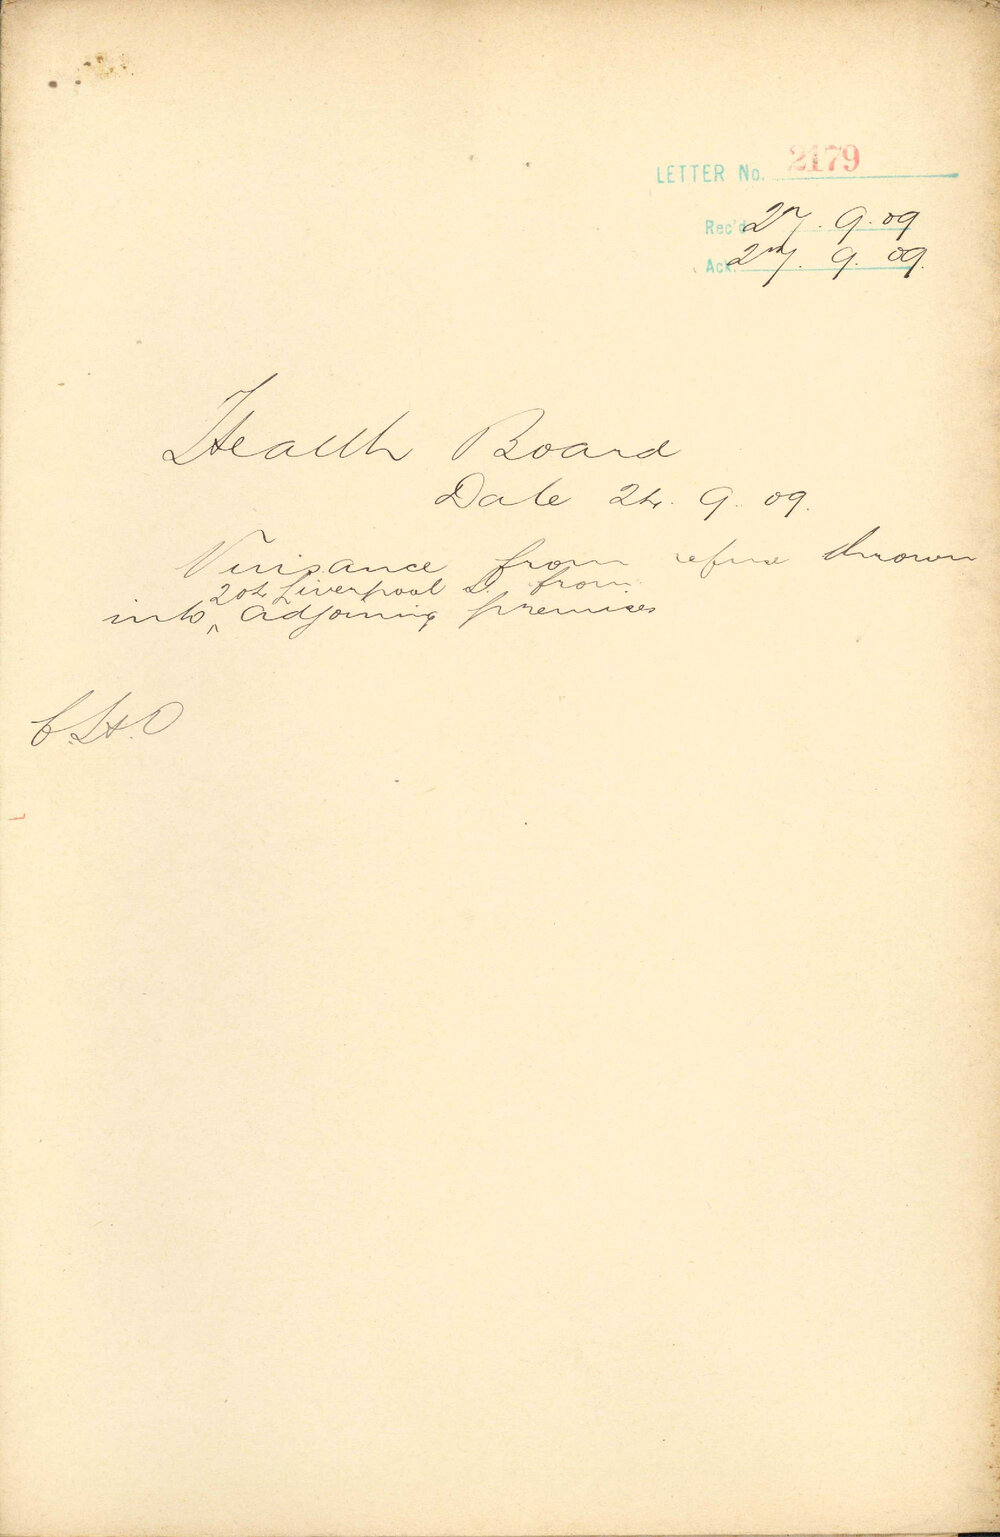 LETTER No. 2179
Rec'd 27. 9. 09
Ack. 27. 9. 09.
Health Board
Date 24. 9. 09.
Nuisance from refuse thrown
204 Liverpool St. from
into ^ adjoining premises
C.H.O